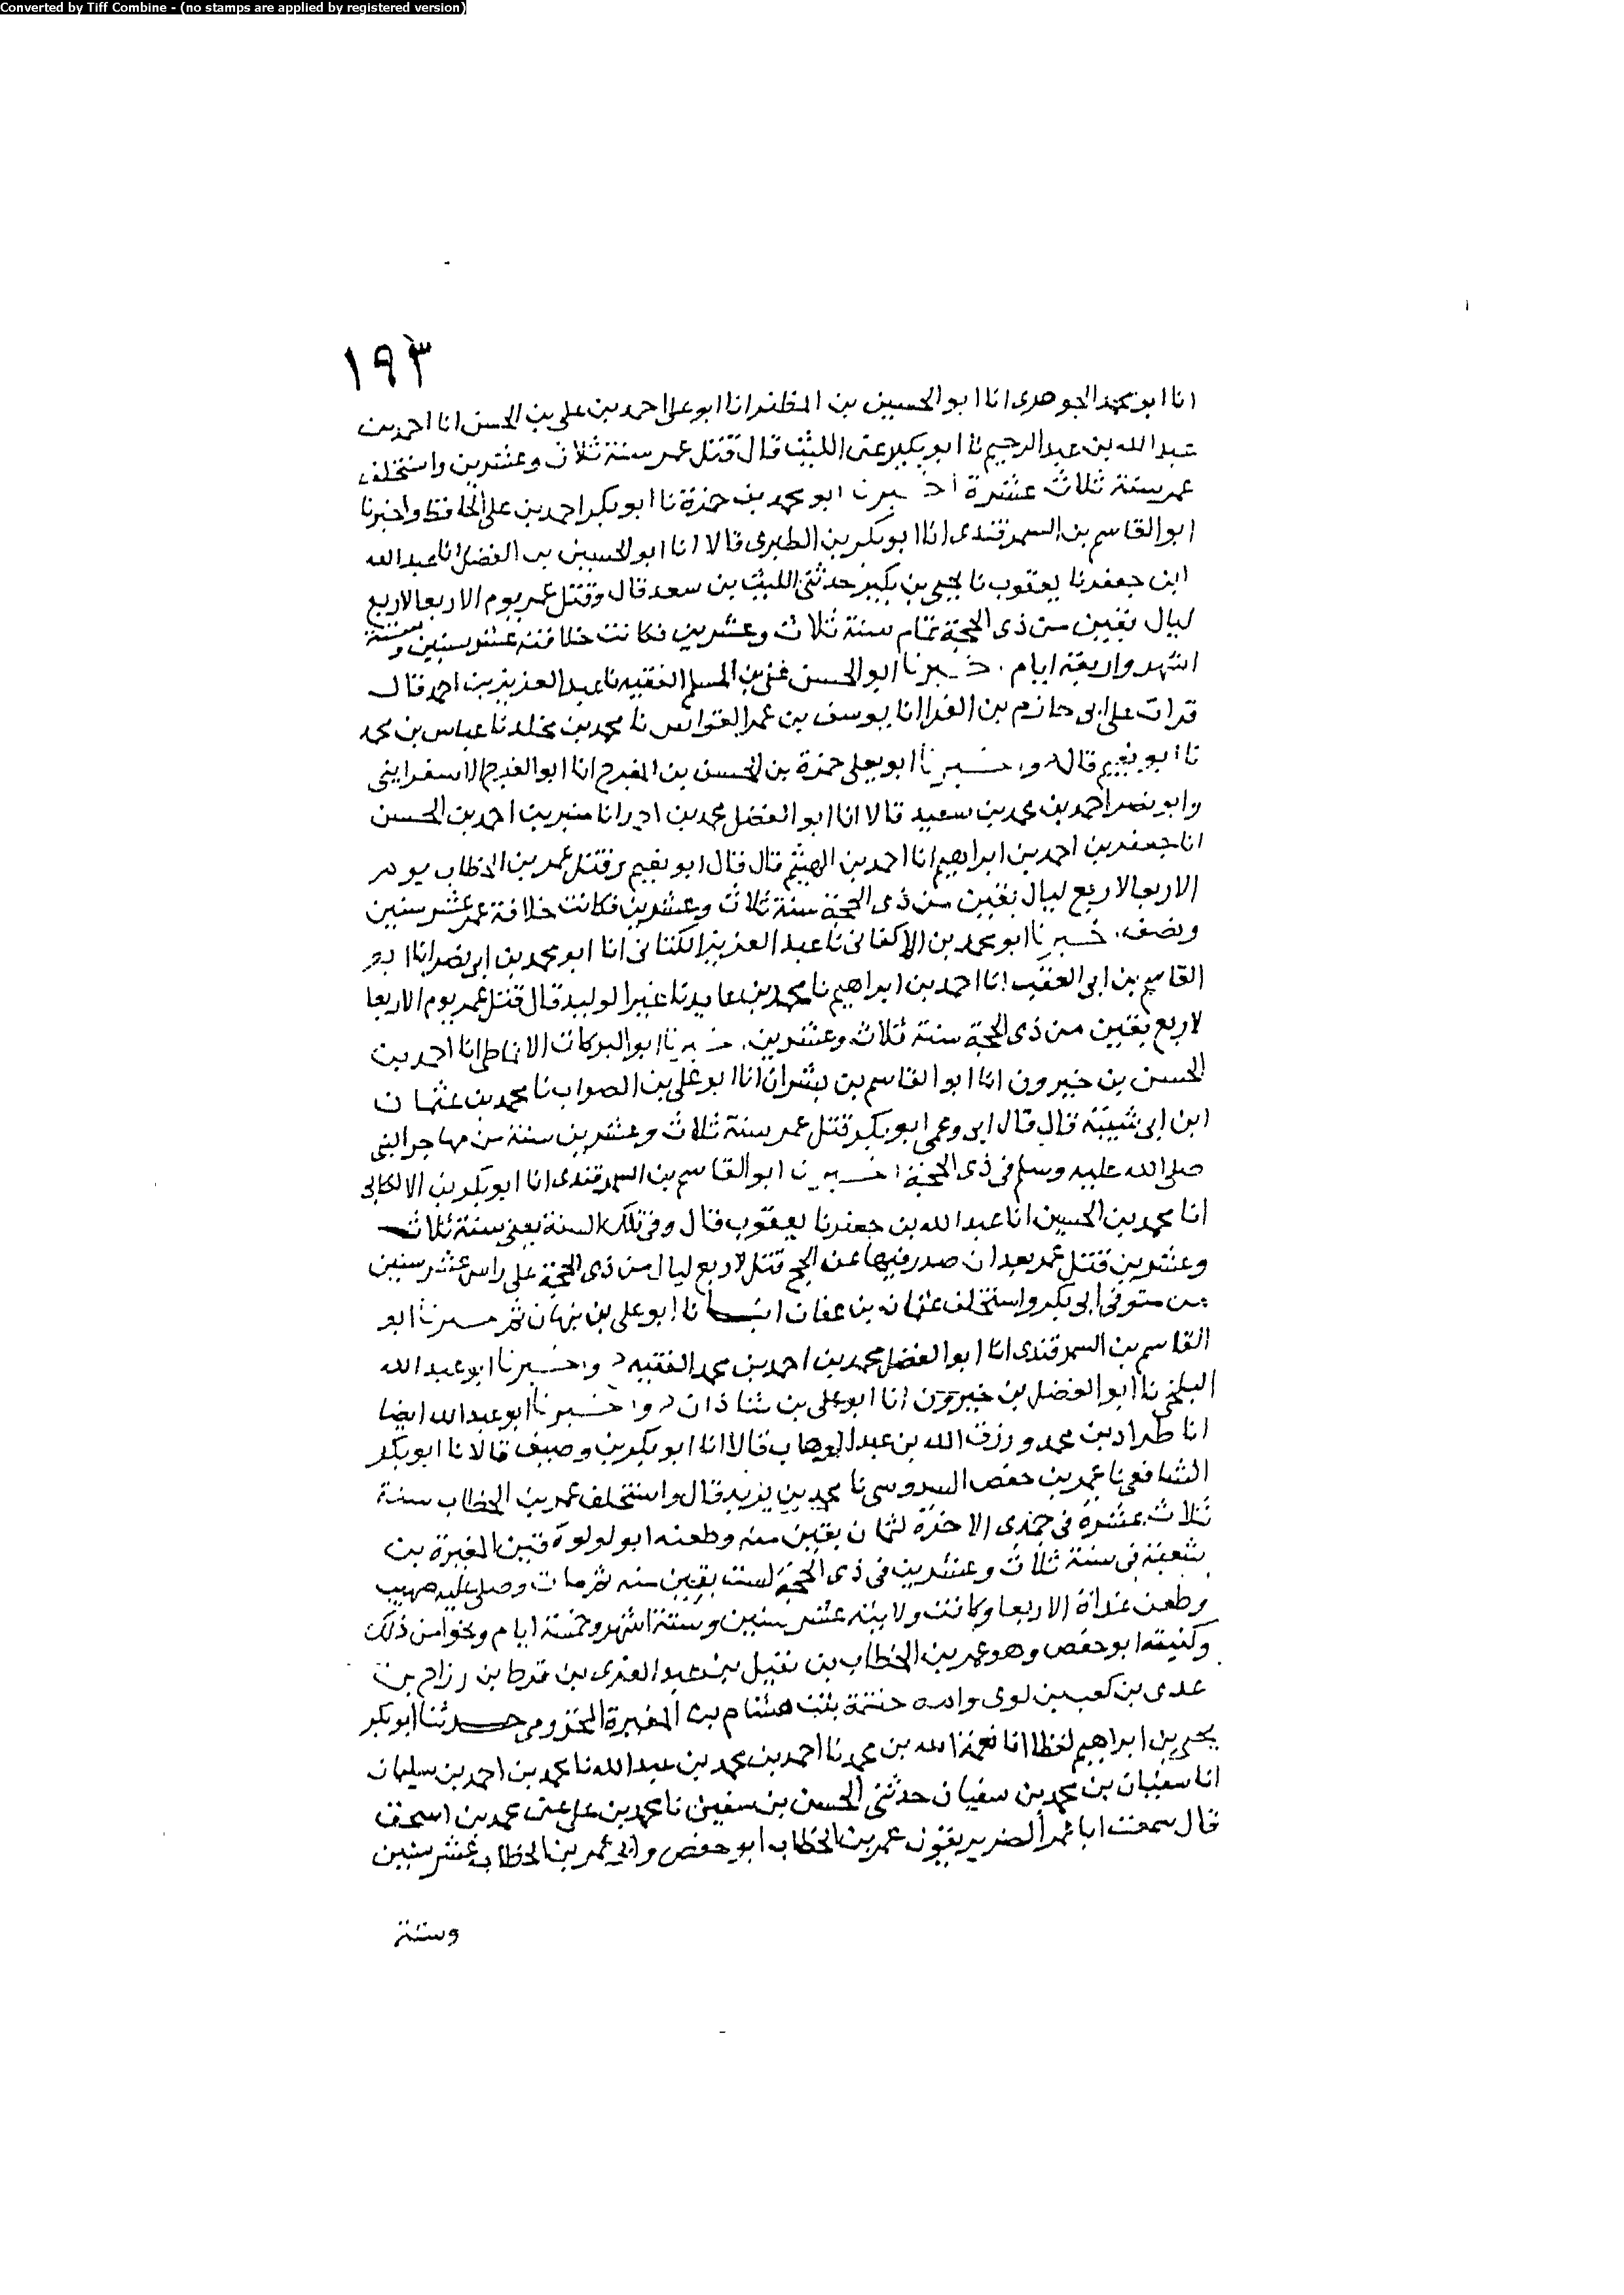 Converted by Tiff Combine - (no stamps are applied by registered version)
١٩٣
انا ابو محمد الجوهرى انا ابو الحسين بن المظفر انا ابو على احمد بن على بن الحسن انا احمد بن
عبد الله بن عبد الرحيم نا ابو بكير عن الليث قال قتل عمر سنة ثلاث وعشرين واستخلف
عمر سنة ثلاث عشرة اخبرنا ابو محمد بن حمزة نا ابو بكر احمد بن على الحافظ واخبرنا
ابو القاسم بن السمرقندى انا ابو بكر بن الطبرى قالا انا ابو الحسين بن الفضل انا عبد الله
ابن جعفر نا يعقوب نا يحيى بن بكير حدثنى الليث بن سعد قال وقتل عمر يوم الاربعا لاربع
ليال بقين من ذى الحجة تمام سنة ثلاث وعشرين فكانت خلافته عشر سنين وستة
اشهر واربعة ايام . خبرنا ابو الحسن على بن المسلم الفقيه نا عبد العزيز بن احمد قال
قرات على ابى حازم بن الفرا انا يوسف بن عمر القواس نا محمد بن مخلد نا عباس بن محمد
نا ابو نعيم قال واخبرنا ابو يعلى حمزة بن الحسن بن المفرج انا ابو الفرج الاسفراينى
وابو نصر احمد بن محمد بن سعيد قالا انا ابو الفضل محمد بن احمد انا منير بن احمد بن الحسن
انا جعفر بن احمد بن ابراهيم انا احمد بن الهيثم قال قال ابو نعيم وقتل عمر بن الخطاب يوم
الاربعا لاربع ليال بقين من ذى الحجة سنة ثلاث وعشرين فكانت خلافة عمر عشر سنين
ونصف . خبرنا ابو محمد بن الاكفانى نا عبد العزيز الكتانى انا ابو محمد بن ابى نصر انا ابو
القاسم بن ابى العقب انا احمد بن ابراهيم نا محمد بن عايد نا غير الوليد قال قتل عمر يوم الاربعا
لاربع بقين من ذى الحجة سنة ثلاث وعشرين . خبرنا ابو البركات الانماطى انا احمد بن
الحسن بن خيرون انا ابو القاسم بن بشران انا ابو على بن الصواب نا محمد بن عثمان
ابن ابى شيبة قال قال ابى وعمى ابو بكر قتل عمر سنة ثلاث وعشرين سنة من مهاجر النبى
صلى الله عليه وسلم فى ذى الحجة اخبرنا ابو القاسم بن السمرقندى انا ابو بكر بن الالكالى
انا محمد بن الحسين انا عبد الله بن جعفر نا يعقوب قال وفى تلك السنة يعنى سنة ثلاث
وعشرين قتل عمر بعد ان صدر فيها عن الحج قتل لاربع ليال من ذى الحجة على راس عشر سنين
من متوفى ابى بكر واستخلف عثمان بن عفان انبانا ابو على بن نبهان ثم خبرنا ابو
القاسم بن السمرقندى انا ابو الفضل محمد بن احمد بن محمد الفقيه واخبرنا ابو عبد الله
البلخى نا ابو الفضل بن خيرون انا ابو على بن شاذان واخبرنا ابو عبد الله ايضا
انا طراد بن محمد ورزق الله بن عبد الوهاب قالا انا ابو بكر بن وصيف قالا نا ابو بكر
الشافعى نا عمر بن حفص السدوسى نا محمد بن يزيد قال واستخلف عمر بن الخطاب سنة
ثلاث عشرة فى جمدى الاخرة لثمان بقين منه وطعنه ابو لولوة قين المغيرة بن
شعبة فى سنة ثلاث وعشرين فى ذى الحجة لست بقين منه ثم مات وصلى عليه صهيب
وطعن غداة الاربعا وكانت ولايته عشر سنين وستة اشهر وخمسة ايام ونحوا من ذلك
وكنيته ابو حفص وهو عمر بن الخطاب بن نفيل بن عبد العزى بن قرط بن رزاح بن
عدى بن كعب بن لوى وامه حنتمة بنت هشام بن المغيرة المخزومى حدثنا ابو بكر
يحيى بن ابراهيم لفظا انا نعمة الله بن محمد نا احمد بن محمد بن عبد الله نا محمد بن احمد بن سليمان
انا سفيان بن محمد بن سفيان حدثنى الحسن بن سفين نا محمد بن على عن محمد بن اسحق
قال سمعت ابا عمر الضرير يقول عمر بن الخطاب ابو حفص ولى عمر بن الخطاب عشر سنين
وستة